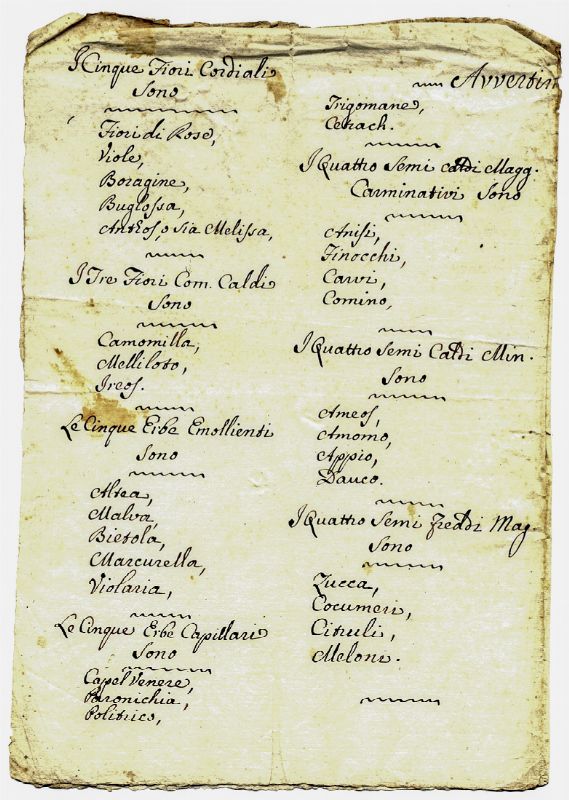 I Cinque Fiori Cordiali
Sono
Fiori di Rose,
Viole,
Boragine,
Buglossa,
Anthos, o sia Melissa,
I Tre Fiori Com. Caldi
Sono
Camomilla,
Melliloto,
Ireos.
Le Cinque Erbe Emollienti
Sono
Altea,
Malva,
Bietola,
Marcurella,
Violaria,
Le Cinque Erbe Capillari
Sono
Capel Venere,
Paronichia,
Politrico,
Avvertim
Trigomane,
Cetrach.
I Quattro Semi Caldi Magg.
Carminativi Sono
Anisi,
Finocchi,
Carvi,
Comino,
I Quattro Semi Caldi Min.
Sono
Ameos,
Amomo,
Appio,
Dauco.
I Quattro Semi Freddi Mag.
Sono
Zucca,
Cocumeri,
Citruli,
Meloni.